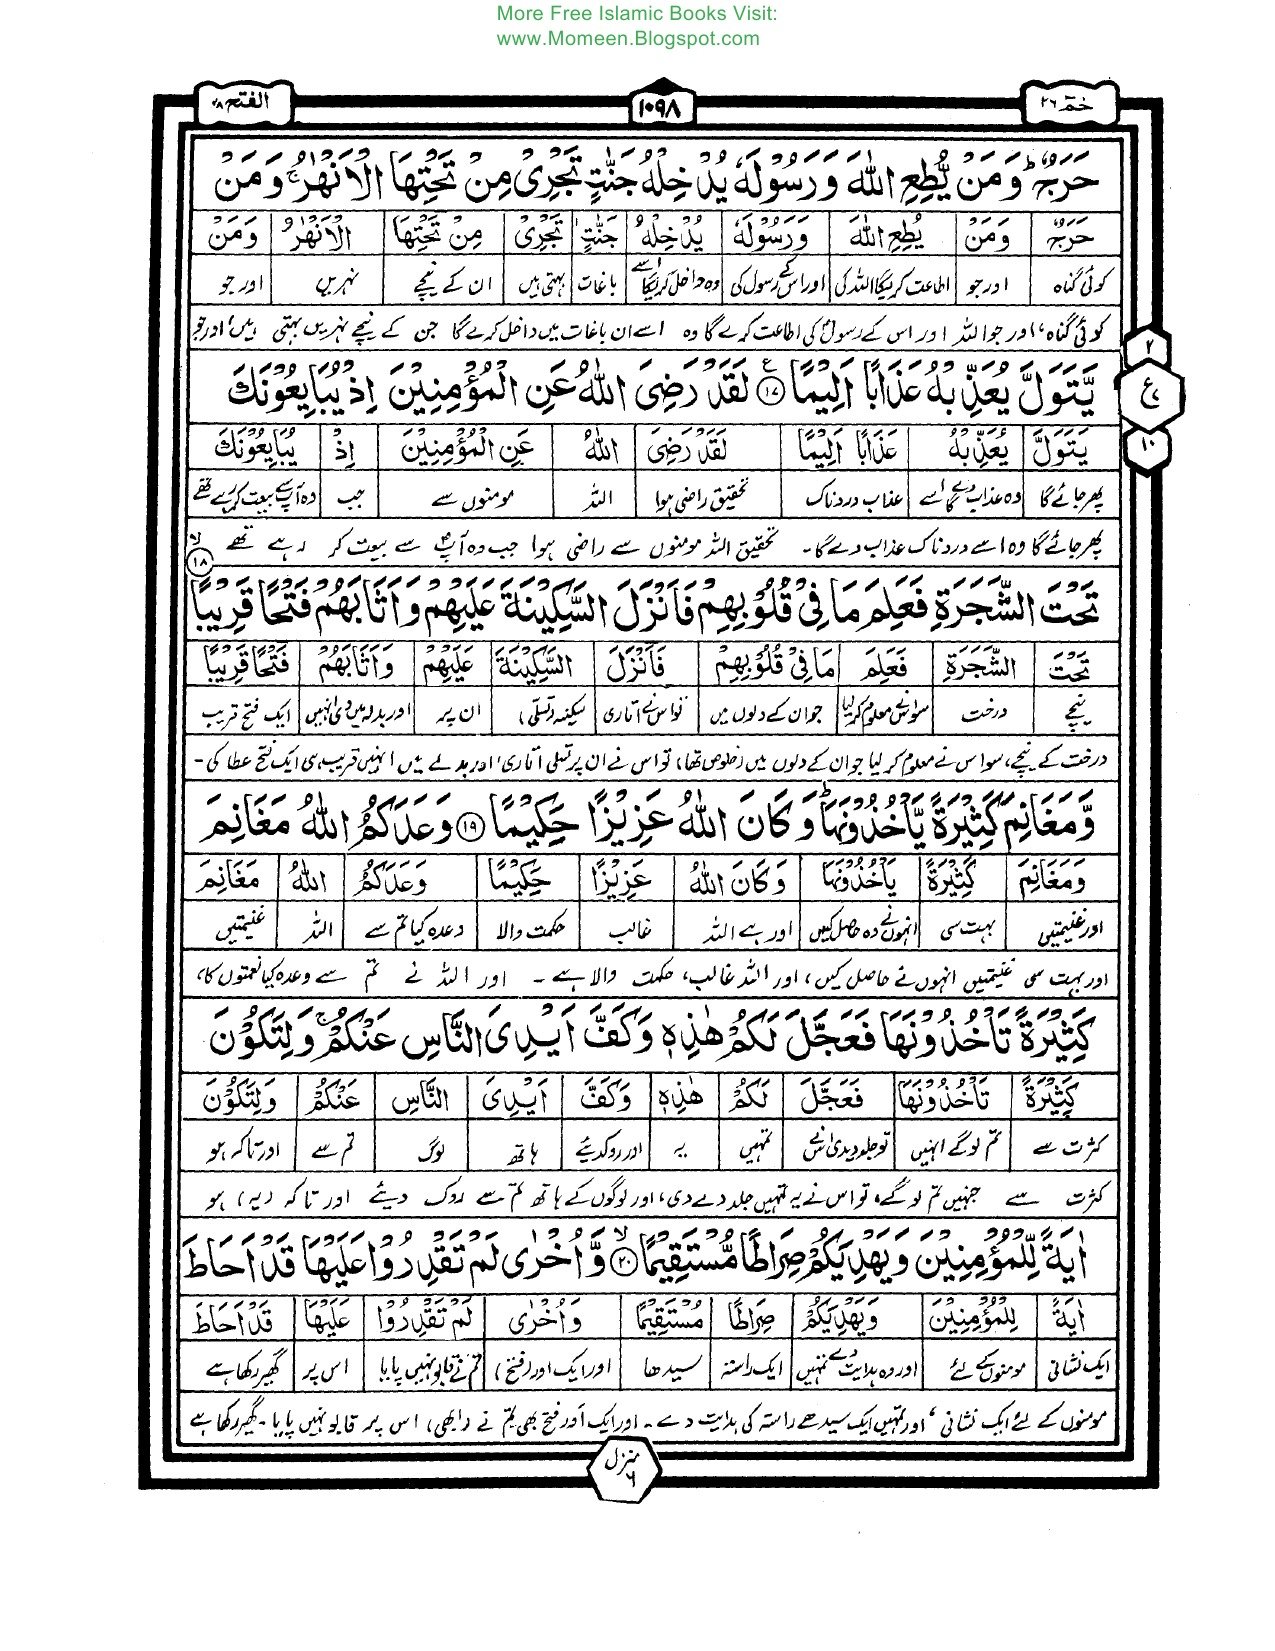 More Free Islamic Books Visit:
www.Momeen.Blogspot.com
حٰمٓ ٢٦ ١٠٩٨ الفتح ٤٨
حَرَجٌ ؕ وَمَنْ يُّطِعِ اللّٰهَ وَرَسُوْلَهٗ يُدْخِلْهُ جَنّٰتٍ تَجْرِيْ مِنْ تَحْتِهَا الْاَنْهٰرُ ۚ وَمَنْ
حَرَجٌ وَمَنْ يُطِعِ اللّٰهَ وَرَسُوْلَهٗ يُدْخِلْهُ جَنّٰتٍ تَجْرِيْ مِنْ تَحْتِهَا الْاَنْهٰرُ وَمَنْ
کوئی گناہ اور جو اطاعت کریگا اللہ کی اور اس کے رسول کی وہ داخل کریگا اسے باغات بہتی ہیں ان کے نیچے نہریں اور جو
کوئی گناہ، اور جو اللہ اور اس کے رسولؐ کی اطاعت کرے گا وہ اسے ان باغات میں داخل کرے گا جن کے نیچے نہریں بہتی ہیں، اور جو
٢
ع
٧
١٠
يَّتَوَلَّ يُعَذِّبْهُ عَذَابًا اَلِيْمًا ۧ ١٧ لَقَدْ رَضِيَ اللّٰهُ عَنِ الْمُؤْمِنِيْنَ اِذْ يُبَايِعُوْنَكَ
يَتَوَلَّ يُعَذِّبْهُ عَذَابًا اَلِيْمًا لَقَدْ رَضِيَ اللّٰهُ عَنِ الْمُؤْمِنِيْنَ اِذْ يُبَايِعُوْنَكَ
پھر جائے گا وہ عذاب دے گا اسے عذاب دردناک تحقیق راضی ہوا اللہ مومنوں سے جب وہ آپؐ سے بیعت کر رہے تھے
پھر جائے گا وہ اسے دردناک عذاب دے گا۔ تحقیق اللہ مومنوں سے راضی ہوا جب وہ آپؐ سے بیعت کر رہے تھے
تَحْتَ الشَّجَرَةِ فَعَلِمَ مَا فِيْ قُلُوْبِهِمْ فَاَنْزَلَ السَّكِيْنَةَ عَلَيْهِمْ وَاَثَابَهُمْ فَتْحًا قَرِيْبًا ۙ ١٨
تَحْتَ الشَّجَرَةِ فَعَلِمَ مَا فِيْ قُلُوْبِهِمْ فَاَنْزَلَ السَّكِيْنَةَ عَلَيْهِمْ وَاَثَابَهُمْ فَتْحًا قَرِيْبًا
نیچے درخت سو اس نے معلوم کر لیا جو ان کے دلوں میں تو اس نے اتاری سکینہ (تسلی) ان پر اور بدلہ میں دی انہیں ایک فتح قریب
درخت کے نیچے، سو اس نے معلوم کر لیا جو ان کے دلوں میں (خلوص تھا)، تو اس نے ان پر تسلی اتاری، اور بدلے میں انہیں قریب ہی ایک فتح عطا کی۔
وَّمَغَانِمَ كَثِيْرَةً يَّاْخُذُوْنَهَا ؕ وَكَانَ اللّٰهُ عَزِيْزًا حَكِيْمًا ١٩ وَعَدَكُمُ اللّٰهُ مَغَانِمَ
وَمَغَانِمَ كَثِيْرَةً يَاْخُذُوْنَهَا وَكَانَ اللّٰهُ عَزِيْزًا حَكِيْمًا وَعَدَكُمُ اللّٰهُ مَغَانِمَ
اور غنیمتیں بہت سی انہوں نے وہ حاصل کیں اور ہے اللہ غالب حکمت والا وعدہ کیا تم سے اللہ غنیمتیں
اور بہت سی غنیمتیں انہوں نے حاصل کیں، اور اللہ غالب، حکمت والا ہے۔ اور اللہ نے تم سے وعدہ کیا نعمتوں کا،
كَثِيْرَةً تَاْخُذُوْنَهَا فَعَجَّلَ لَكُمْ هٰذِهٖ وَكَفَّ اَيْدِيَ النَّاسِ عَنْكُمْ ۚ وَلِتَكُوْنَ
كَثِيْرَةً تَاْخُذُوْنَهَا فَعَجَّلَ لَكُمْ هٰذِهٖ وَكَفَّ اَيْدِيَ النَّاسِ عَنْكُمْ وَلِتَكُوْنَ
کثرت سے تم لوگے انہیں تو جلد دیدی اس نے تمہیں یہ اور روک دیئے ہاتھ لوگ تم سے اور تاکہ ہو
کثرت سے جنہیں تم لوگے، تو اس نے یہ تمہیں جلد دے دی، اور لوگوں کے ہاتھ تم سے روک دیئے اور تاکہ (یہ) ہو
اٰيَةً لِّلْمُؤْمِنِيْنَ وَيَهْدِيَكُمْ صِرَاطًا مُّسْتَقِيْمًا ۙ ٢٠ وَّاُخْرٰى لَمْ تَقْدِرُوْا عَلَيْهَا قَدْ اَحَاطَ
اٰيَةً لِلْمُؤْمِنِيْنَ وَيَهْدِيَكُمْ صِرَاطًا مُسْتَقِيْمًا وَاُخْرٰى لَمْ تَقْدِرُوْا عَلَيْهَا قَدْ اَحَاطَ
ایک نشانی مومنوں کے لئے اور وہ ہدایت دے تمہیں ایک راستہ سیدھا اور ایک اور (فتح) تم نے قابو نہیں پایا اس پر گھیر رکھا ہے
مومنوں کے لئے ایک نشانی، اور تمہیں ایک سیدھے راستہ کی ہدایت دے۔ اور ایک اور فتح بھی تم نے (ابھی) اس پر قابو نہیں پایا۔ گھیر رکھا ہے
منزل ٦